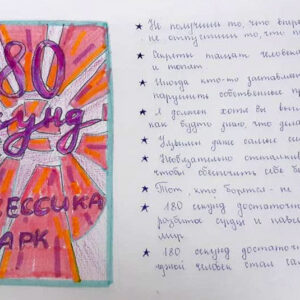 180
секунд
ДЖЕССИКА
ПАРК
★ Не получишь то, что впер
не отпустишь то, что по
★ Секреты тащат человека
и топят
★ Иногда кто-то заставля
нарушить собственные пр
★ Я должен хотя бы вы
как будто знаю, что дела
★ Удивили даже самые се
★ Необязательно отталкив
чтобы обеспечить себе б
★ Тот, кто борется - не
★ 180 секунд достаточн
разбитое сердце и навсе
мир.
★ 180 секунд достаточ
один человек стал са